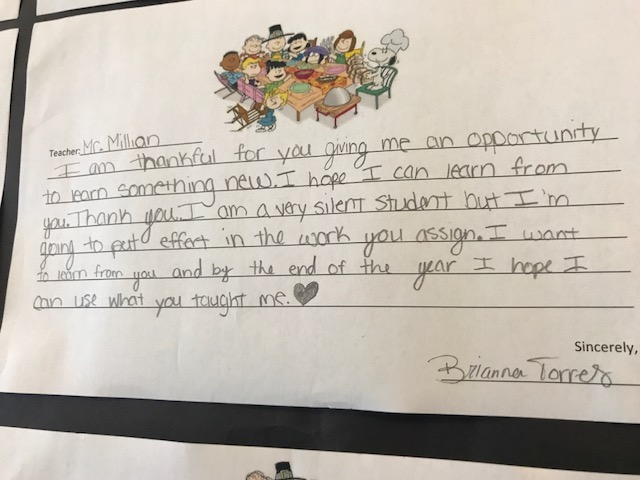 Teacher: Mr. Millian
I am thankful for you giving me an opportunity
to learn something new. I hope I can learn from
you. Thank you. I am a very silent student but I'm
going to put effort in the work you assign. I want
to learn from you and by the end of the year I hope I
can use what you taught me.
Sincerely,
Brianna Torres